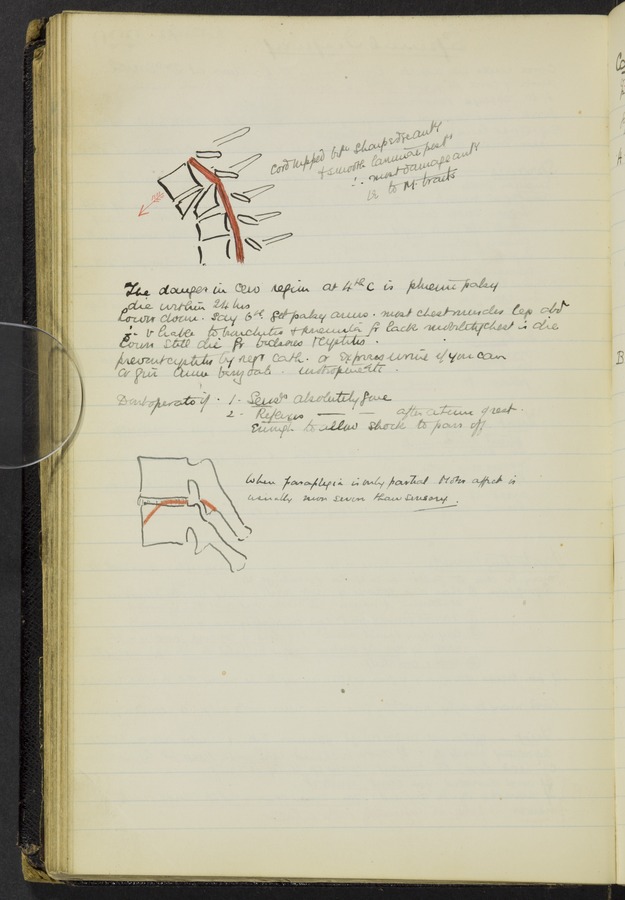 Cord nipped btn sharp edge antr
& smooth laminae postr
∴ most damage antr
ie to M. tracts
The danger in Cerv region at 4th C is phrenic palsy
die within 24 hrs
Lower down. Say 6th get palsy arms. most chest muscles legs abd
∴ v liable to bronchitis & pneumonia fr lack mobility chest & die
Lower still die fr bedsores & cystitis.
prevent cystitis by regr cath. or Express urine if you can
or give urotropine
Dont operate if. 1. Sensn absolutely gone
2 - Reflexes — — after a time great
Enough to allow shock to pass off
When paraplegia is only partial Motor affect is
usually more severe than sensory.